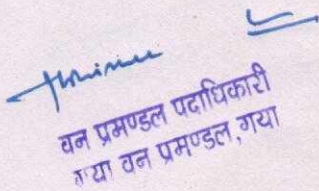 वन प्रमण्डल पदाधिकारी
गया वन प्रमण्डल, गया